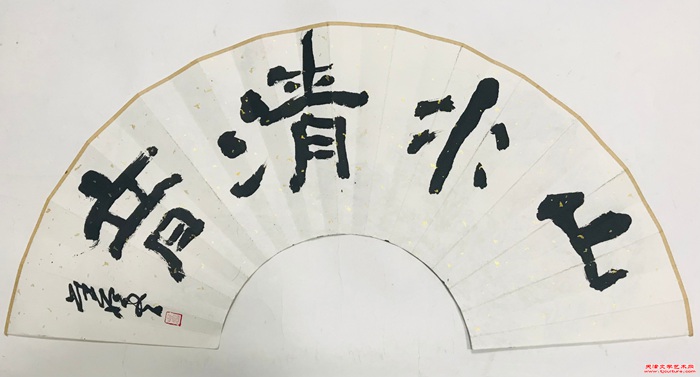 山水清音
天津文学艺术网
www.tjculture.com